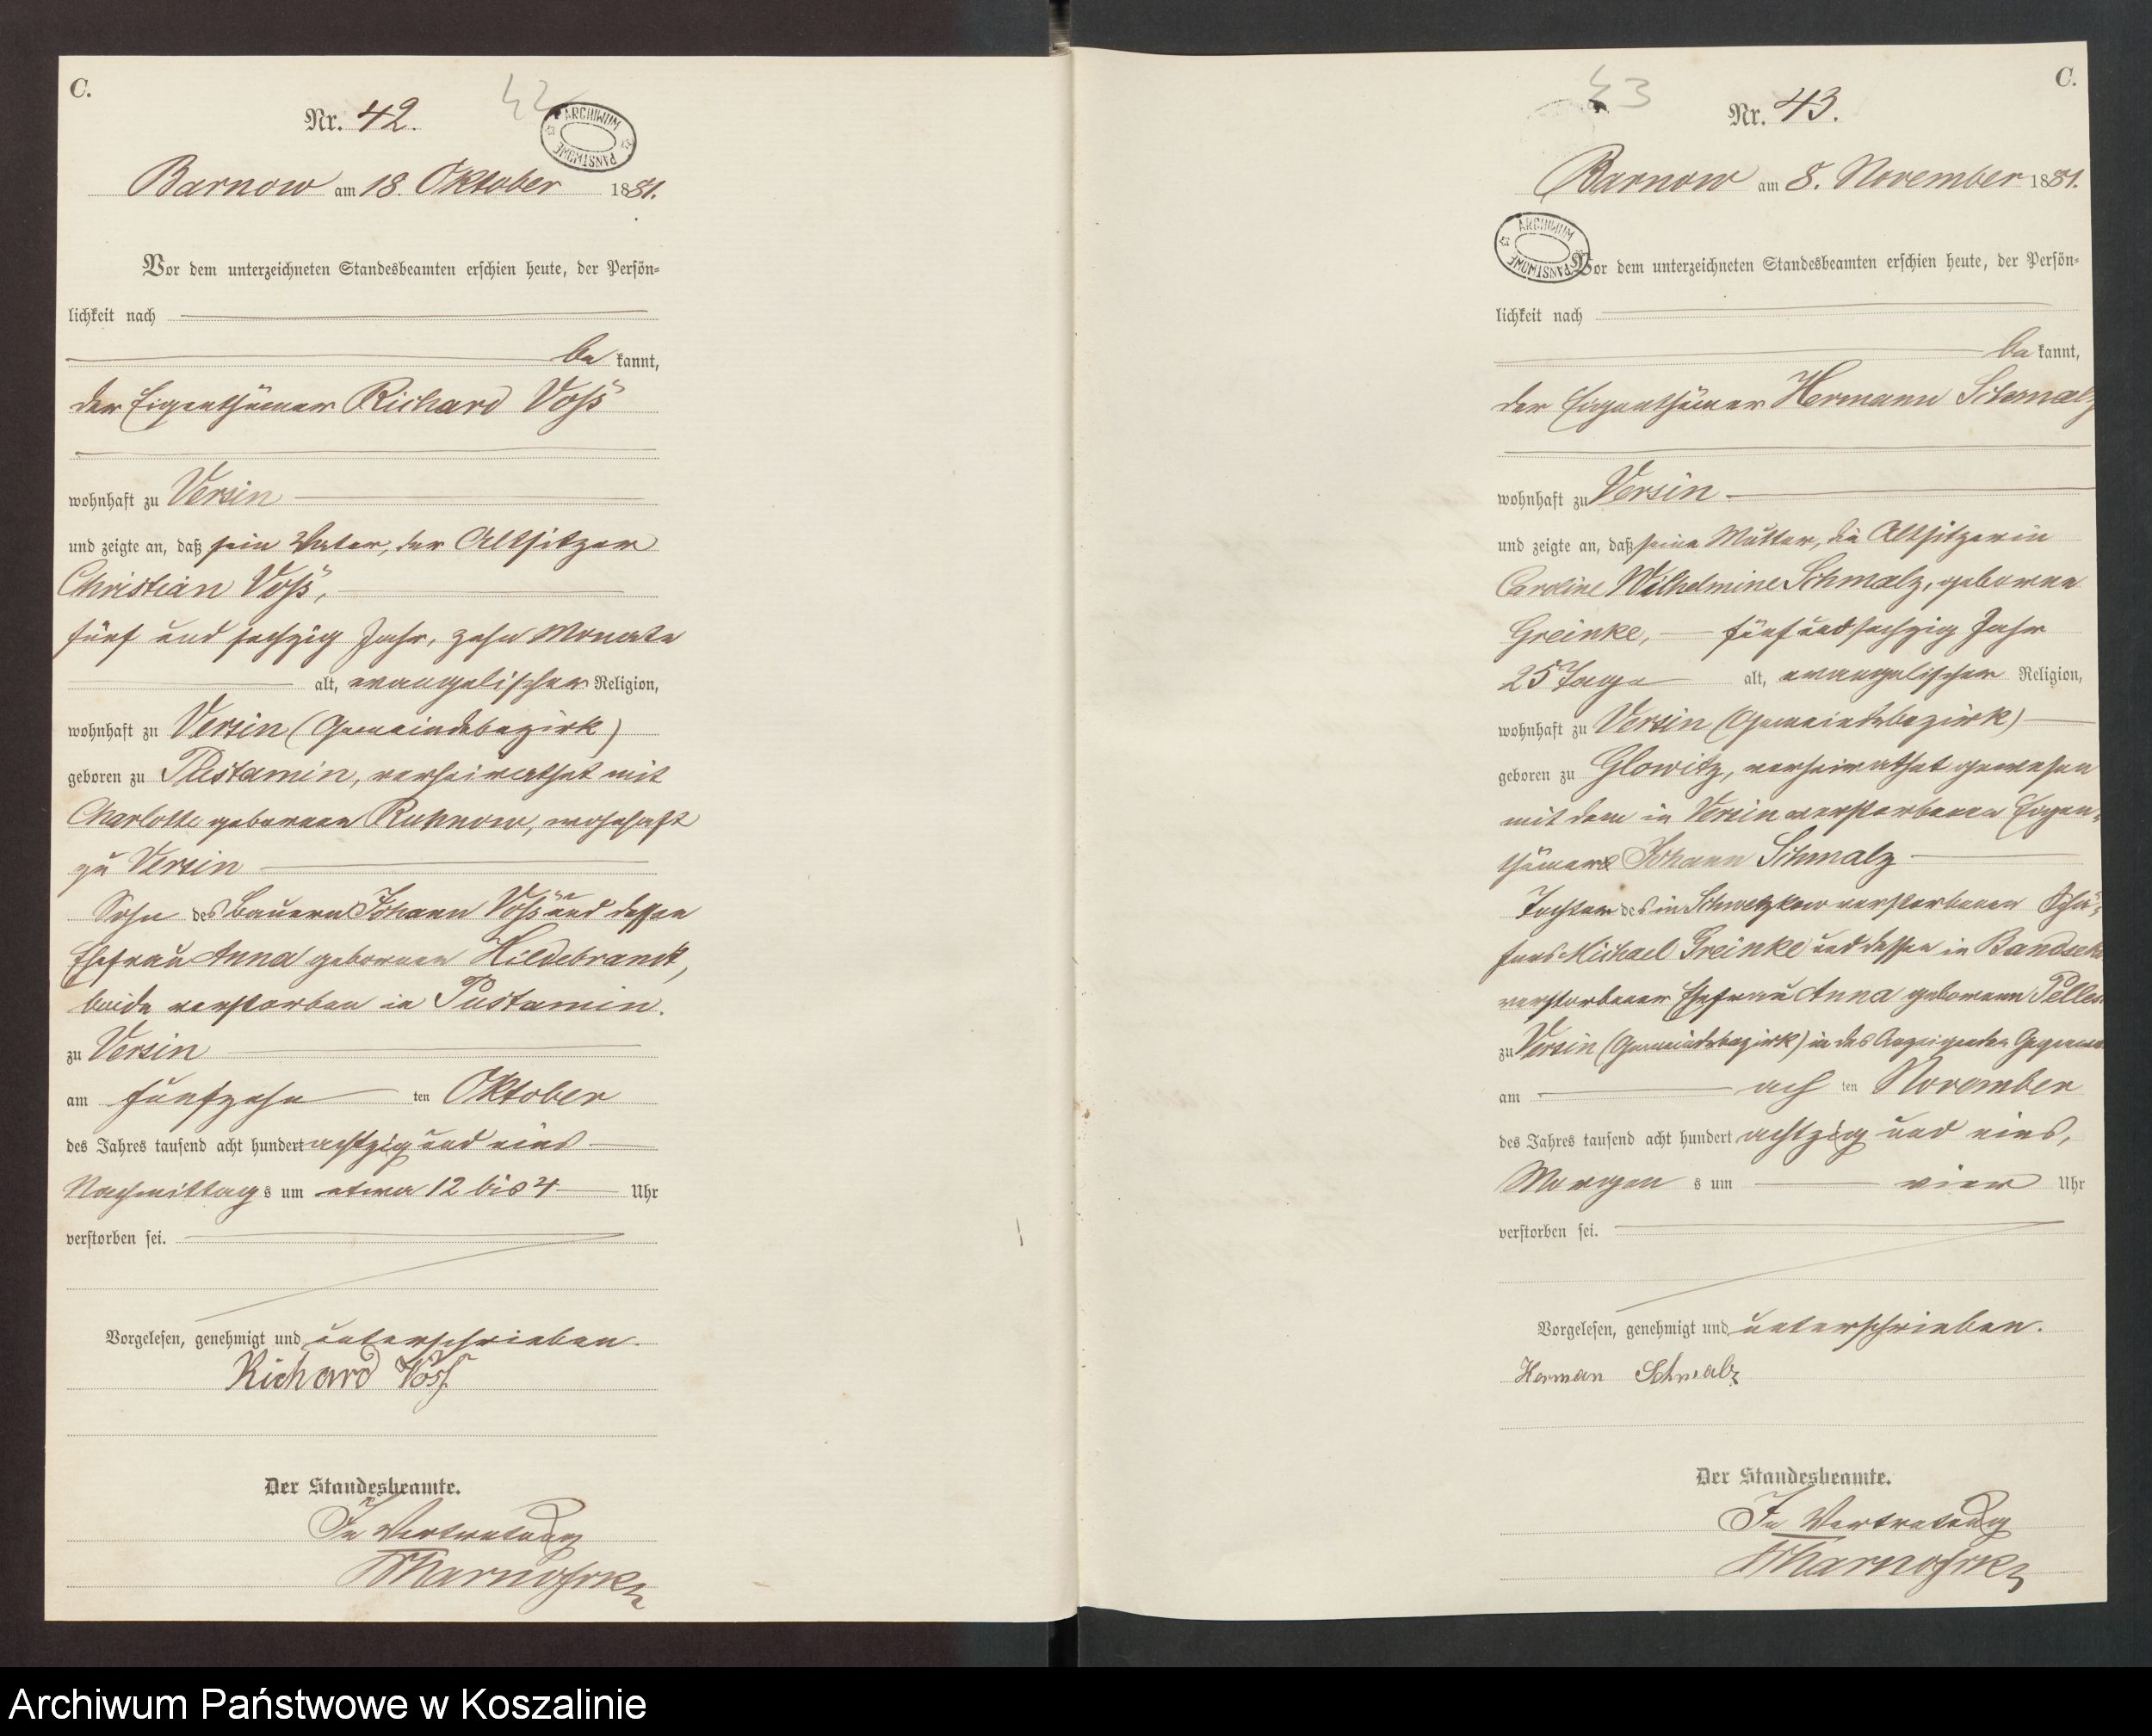 C.
42
Nr. 42.
ARCHIWUM PAŃSTWOWE
Barnow am 18. Oktober 1881.
Vor dem unterzeichneten Standesbeamten erschien heute, der Persön-
lichkeit nach
be kannt,
der Eigenthümer Richard Voß
wohnhaft zu Versin
und zeigte an, daß sein Vater, der Altsitzer
Christian Voß,
fünf und sechzig Jahr, zehn Monate
alt, evangelischer Religion,
wohnhaft zu Versin (Gemeindebezirk)
geboren zu Pustamin, verheirathet mit
Charlotte geborenen Ruhnow, wohnhaft
zu Versin
Sohn des Bauern Johann Voß und dessen
Ehefrau Anna geborenen Hildebrandt,
beide verstorben in Pustamin.
zu Versin
am fünfzehn ten Oktober
des Jahres tausend acht hundert achtzig und eins
Nachmittag s um etwa 12 bis 4 Uhr
verstorben sei.
Vorgelesen, genehmigt und unterschrieben.
Richard Voß.
Der Standesbeamte.
In Vertretung
C.
43
Nr. 43.
Barnow am 8. November 1881.
ARCHIWUM PAŃSTWOWE
Vor dem unterzeichneten Standesbeamten erschien heute, der Persön-
lichkeit nach
be kannt,
der Eigenthümer Hermann Schmalz
wohnhaft zu Versin
und zeigte an, daß seine Mutter, die Altsitzerin
Caroline Wilhelmine Schmalz, geborene
Greinke, fünf und sechzig Jahr
25 Tage alt, evangelischer Religion,
wohnhaft zu Versin (Gemeindebezirk)
geboren zu Glowitz, verheirathet gewesen
mit dem in Versin verstorbenen Eigen-
thümer Johann Schmalz
Tochter des in Schwetzkow verstorbenen Schä-
fers Michael Greinke und dessen in
verstorbener Ehefrau Anna geborenen
zu Versin (Gemeindebezirk) in des Anzeigenden
am ach ten November
des Jahres tausend acht hundert achtzig und eins,
Morgen s um vier Uhr
verstorben sei.
Vorgelesen, genehmigt und unterschrieben.
Herman Schmalz
Der Standesbeamte.
In Vertretung
Archiwum Państwowe w Koszalinie